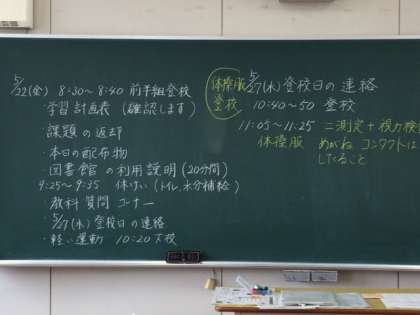 5/22(金) 8:30〜8:40 前半組登校
・学習計画表 (確認します)
・課題の返却
・本日の配布物
・図書館の利用説明 (20分間)
9:25〜9:35 休けい (トイレ,水分補給)
・教科質問コーナー
・5/27(水) 登校日の連絡
・軽い運動 10:20下校
体操服
登校
5/27(水) 登校日の連絡
10:40〜50 登校
11:05〜11:25 二測定+視力検
体操服 めがね コンタクトは
してくること